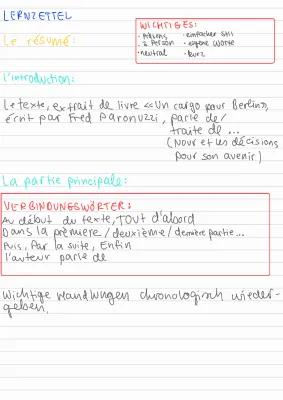 LERNZETTEL
WICHTIGES:
· Présens · einfacher Stil
· 3. Person · eigene Worte
· neutral · kurz
Le résumé:
L'introduction:
Le texte, extrait de livre «Un cargo pour Berlin»,
écrit par Fred Paronuzzi, parle de/
traite de ...
(Nour et les décisions
pour son avenir)
La partie principale:
VERBINDUNGSWÖRTER:
Au début du texte, TOUT d'abord
Dans la première / deuxième / dernière partie...
Puis, Par la suite, Enfin
l'auteur parle de
Wichtige Handlungen chronologisch wieder-
geben.